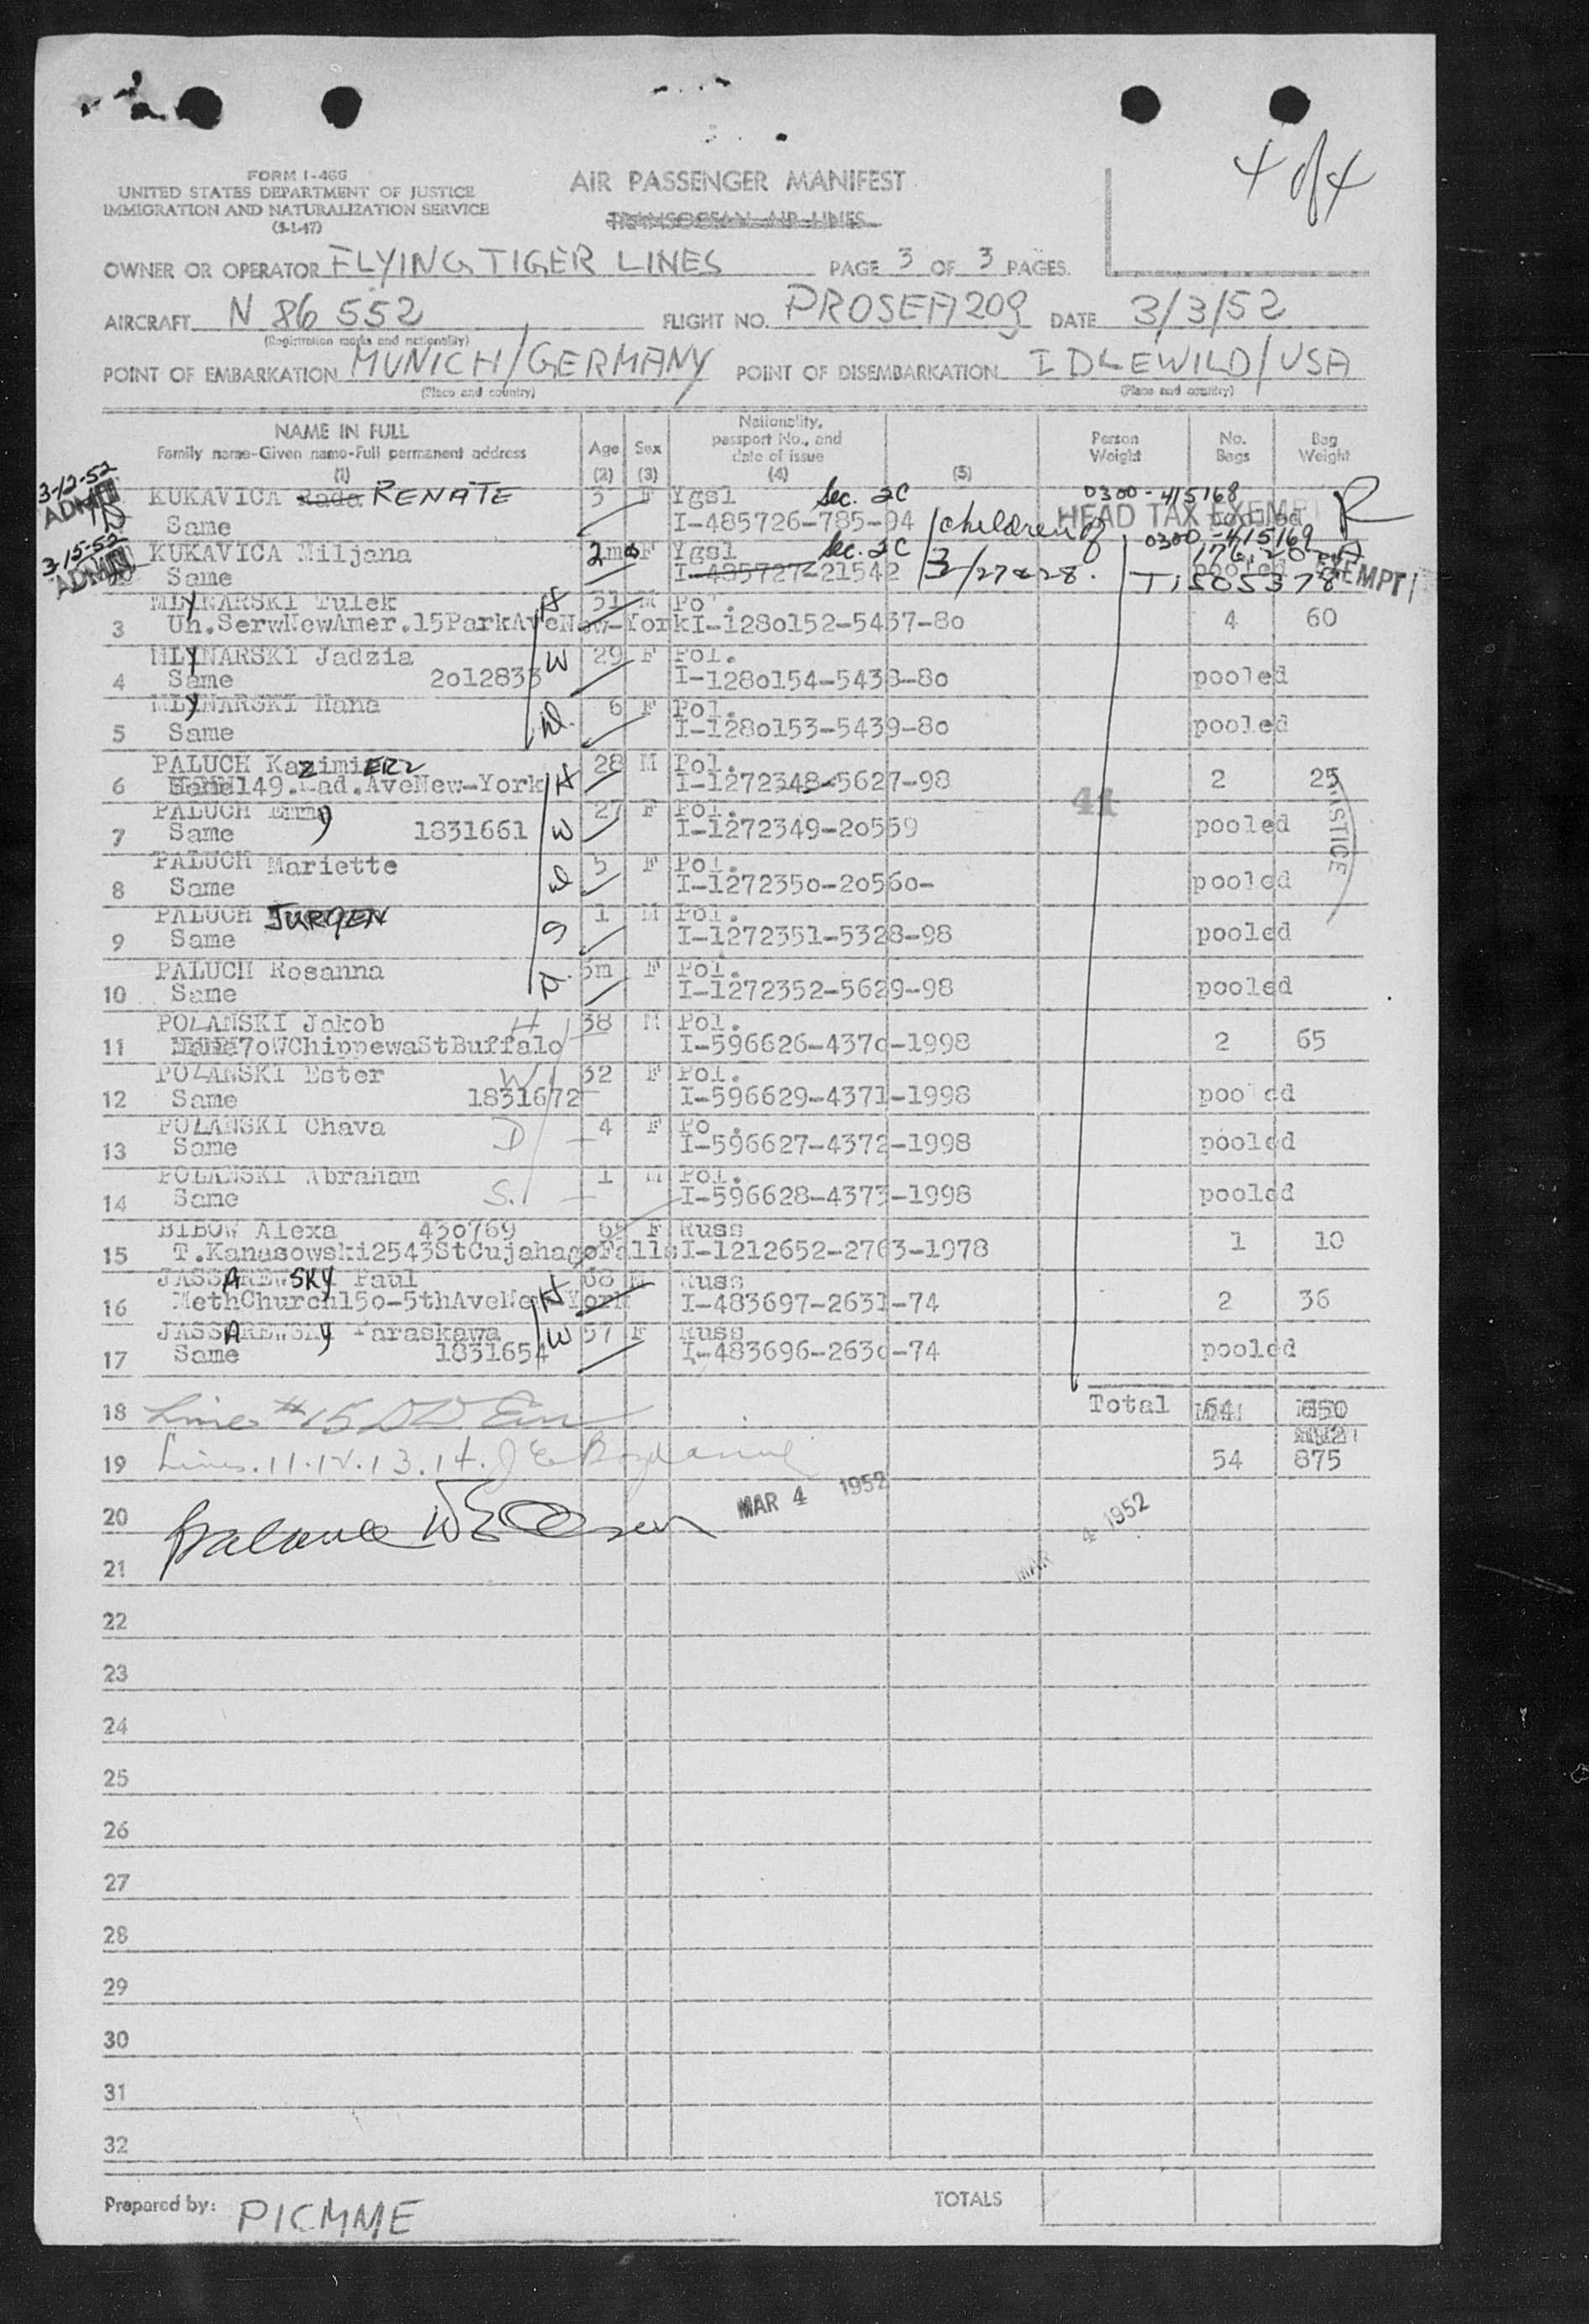 4 of 4
FORM I-466
UNITED STATES DEPARTMENT OF JUSTICE
IMMIGRATION AND NATURALIZATION SERVICE
(5-1-47)
AIR PASSENGER MANIFEST
TRANSOCEAN AIR LINES
OWNER OR OPERATOR FLYING TIGER LINES PAGE 3 OF 3 PAGES
AIRCRAFT N 86 552 FLIGHT NO. DATE 3/3/52
(Registration marks and nationality)
POINT OF EMBARKATION MUNICH/GERMANY POINT OF DISEMBARKATION IDLEWILD/USA
(Place and country) (Place and country)
NAME IN FULL Age Sex Nationality, passport No., and date of issue Person Weight No. Bags Bag Weight
Family name-Given name-Full permanent address
(1) (2) (3) (4) (5)
3-12-52 KUKAVICA Rada RENATE F Ygsl Sec. 2C 0300-415168
ADMIT Same I-485726-785-94 children of HEAD TAX EXEMPT pooled
3-15-52 KUKAVICA Miljana 2mos F Ygsl Sec. 2C 0300-415169
ADMIT Same I-485727-21542 3/27&28. pooled EXEMPT
MLYNARSKI Tulek H 31 M Pol.
3 Un.SerwNewAmer.15ParkAveNew-York I-1280152-5437-80 4 60
MLYNARSKI Jadzia W 29 F Pol.
4 Same 2012833 I-1280154-5438-80 pooled
MLYNARSKI Hana D. 6 F Pol.
5 Same I-1280153-5439-80 pooled
PALUCH KazimiERZ H 28 M Pol.
6 149.Mad.AveNew-York I-1272348-5627-98 2 25
PALUCH W 27 F Pol.
7 Same 1831661 I-1272349-20559 pooled
PALUCH Mariette D 5 F Pol.
8 Same I-1272350-20560- pooled
PALUCH JURGEN S 1 M Pol.
9 Same I-1272351-5328-98 pooled
PALUCH Rosanna D. 3m F Pol.
10 Same I-1272352-5629-98 pooled
POLANSKI Jakob H 38 M Pol.
11 70WChippewaStBuffalo I-596626-4370-1998 2 65
POLANSKI Ester W 32 F Pol.
12 Same 1831672 I-596629-4371-1998 pooled
POLANSKI Chava D 4 F Po .
13 Same I-596627-4372-1998 pooled
POLANSKI Abraham S. 1 M Pol.
14 Same I-596628-4373-1998 pooled
BIBOW Alexa 450769 F Russ
15 T.Kanasowski2543StCujahagoFalls I-1212652-2763-1978 1 10
JASSAREWSKY Paul H 68 M Russ
16 MethChurch150-5thAveNew-York I-483697-2631-74 2 36
JASSAREWSKY Paraskawa W 57 F Russ
17 Same 1831654 I-483696-2630-74 pooled
41
JUSTICE
18 Line #15 Total 54 850
19 Lines. 11.12.13.14. 54 875
20 MAR 4 1952 MAR 4 1952
21
22
23
24
25
26
27
28
29
30
31
32
Prepared by: PICMME TOTALS